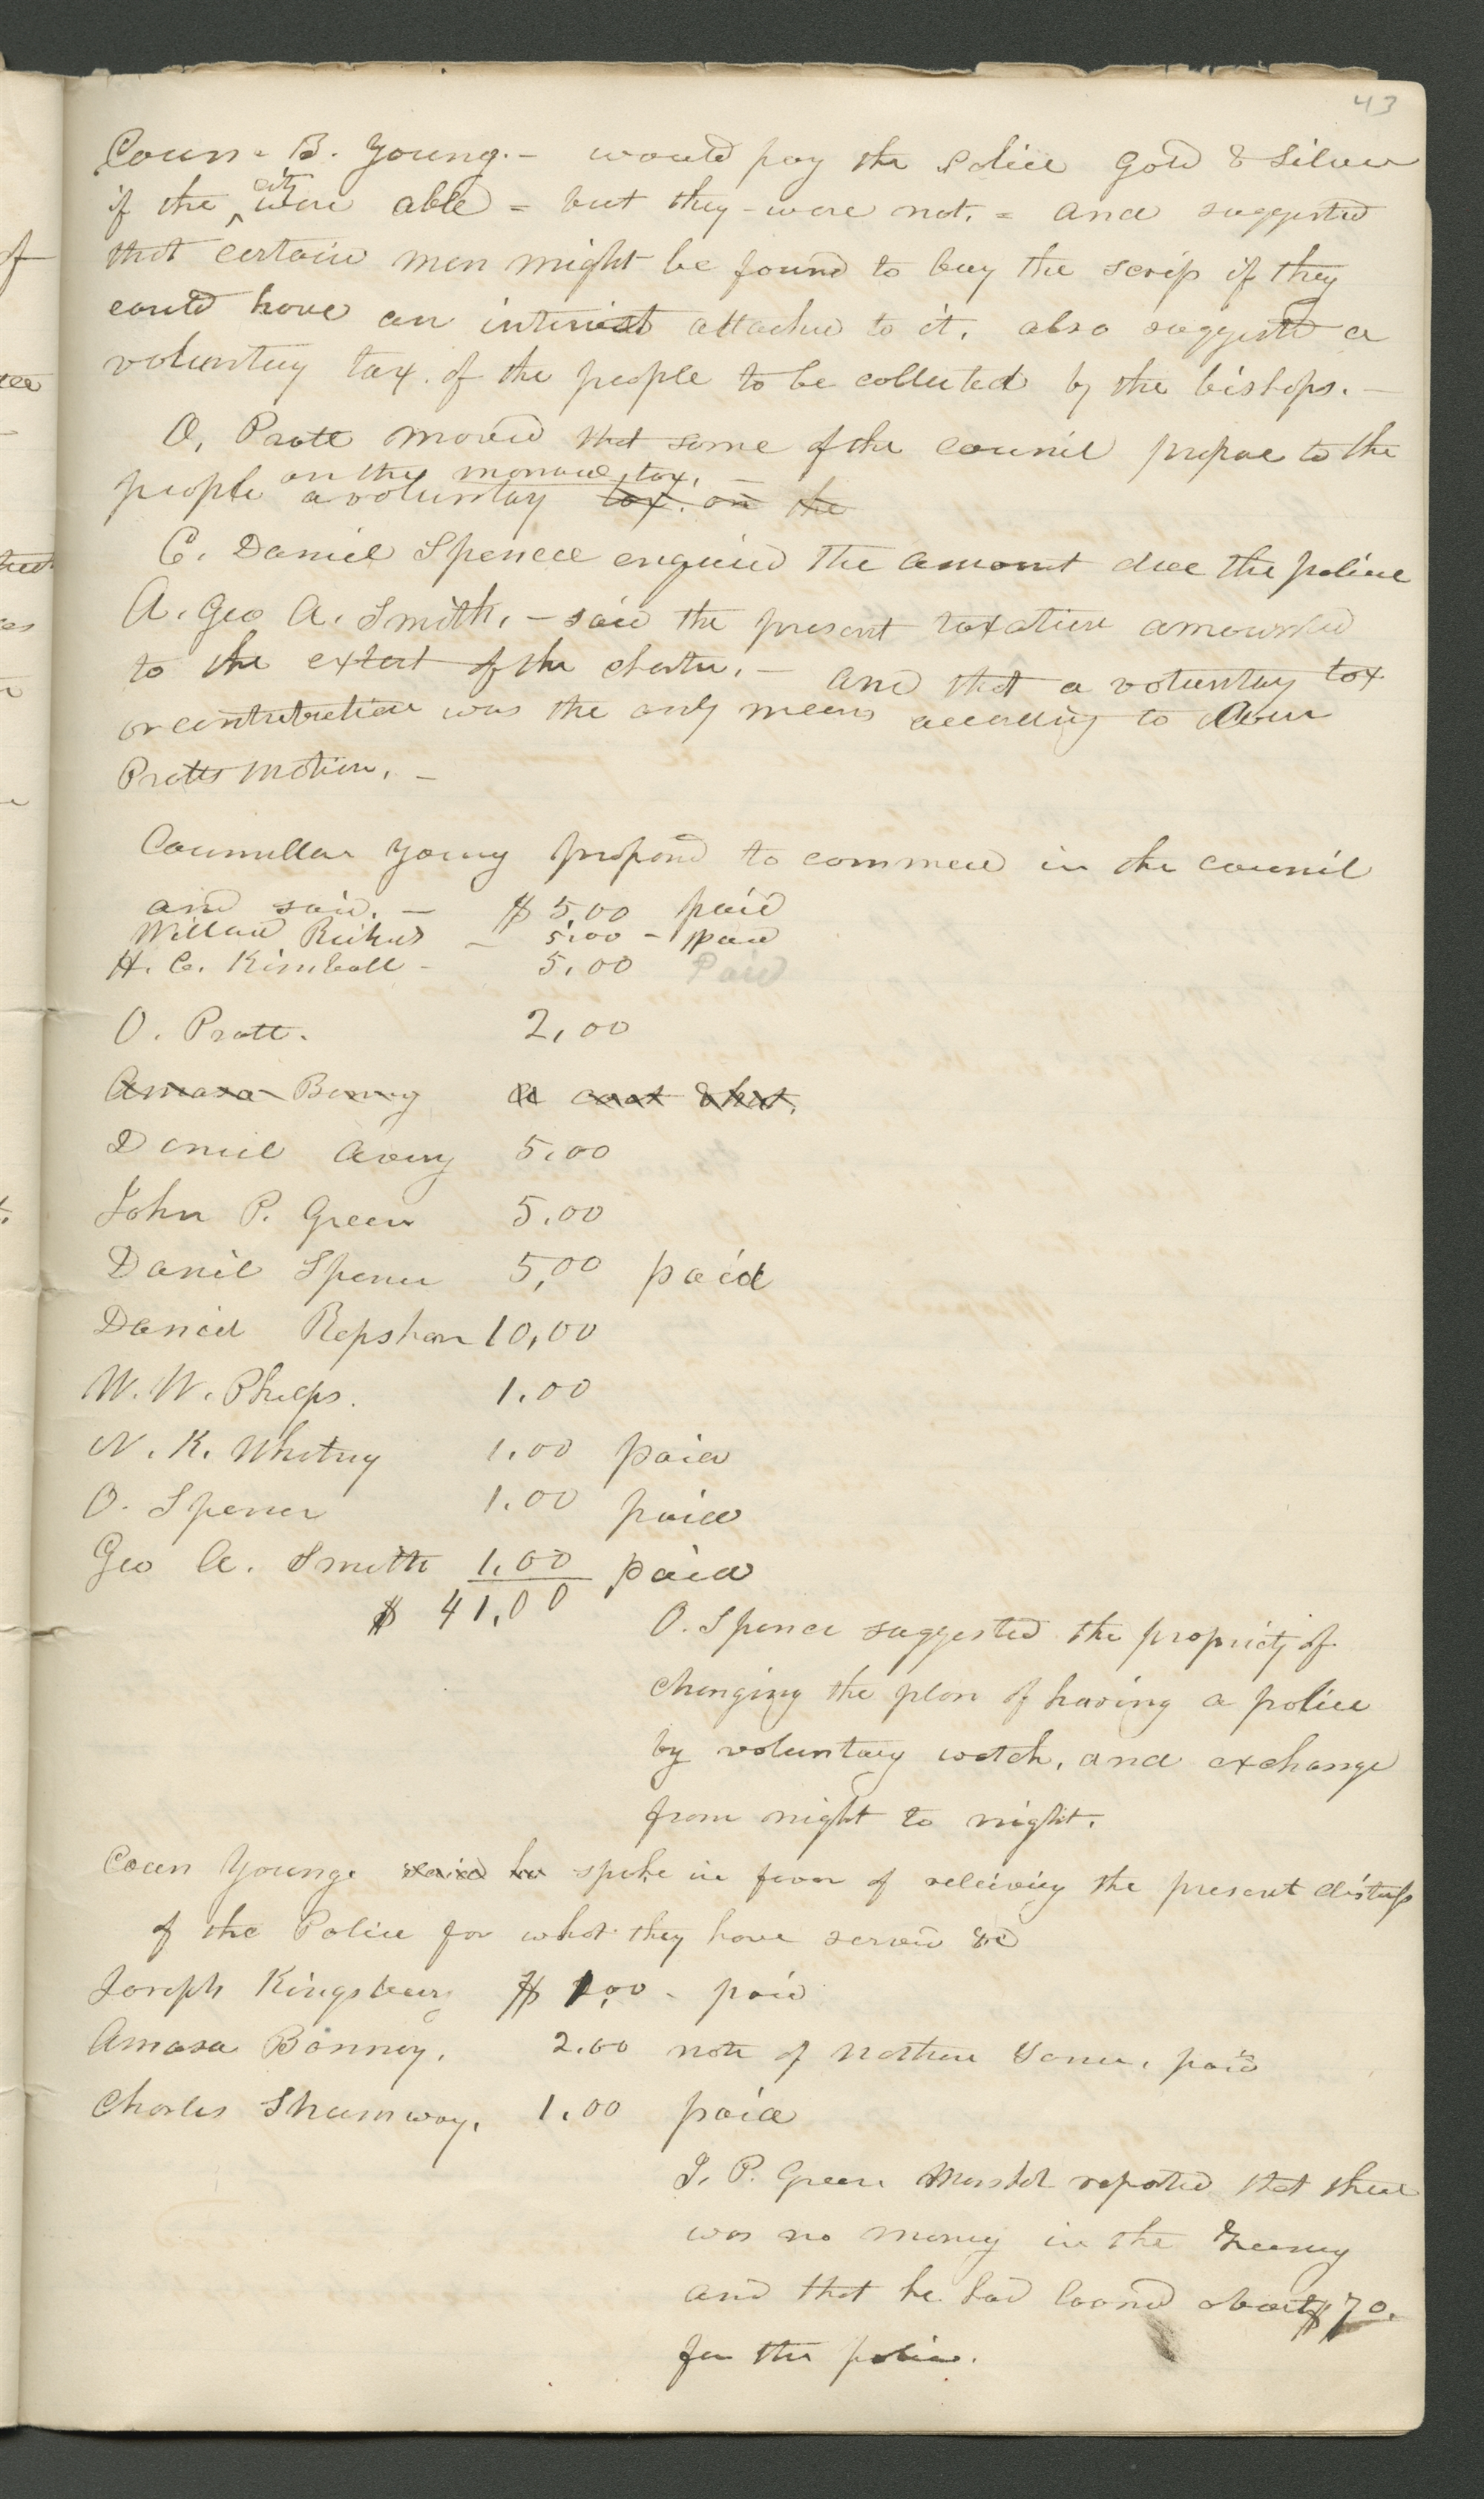 43
Coun- B. Young.- would pay the Police Gold & Silver
if the city were able = but they - were not. = and suggested
that certain men might be found to buy the scrip if they
could have an interest attached to it. also suggested a
voluntary tax. of the people to be collected by the bishops. -
O. Pratt moved that some of the council propose to the
people a voluntary on the tax. - tax. on the
C. Daniel Spencer enquired the amount due the police
A. Geo A. Smith. - said the present taxation amounted
to the extent of the charter. - and that a voluntary tax
or contribution was the only means according to Coun
Pratts motion. -
Councillor Young proposed to commence in the council
and said. - $5.00 paid
Willard Richards - 5.00 - paid
H. C. Kimball - 5.00 Paid
O. Pratt. 2.00
Amasa Bonney a coat & hat.
Daniel Avery 5.00
John P. Green 5.00
Daniel Spencer 5.00 paid
Daniel Repshar 10.00
W. W. Phelps. 1.00
N. K. Whitney 1.00 paid
O. Spencer 1.00 paid
Geo A. Smith 1.00 paid
$ 41.00
O. Spencer suggested the propriety of
changing the plan of having a police
by voluntary watch, and exchange
from night to night.
Coun Young. said he spoke in favor of relieving the present distress
of the Police for what they have served &c
Joseph Kingsbury $ 1.00 - paid
Amasa Bonney. 2.00 note of paid
Charles Shumway. 1.00 paid
J. P. Green Marshal reported that there
was no money in the Treasury
and that he had loaned about $70.
for the police.